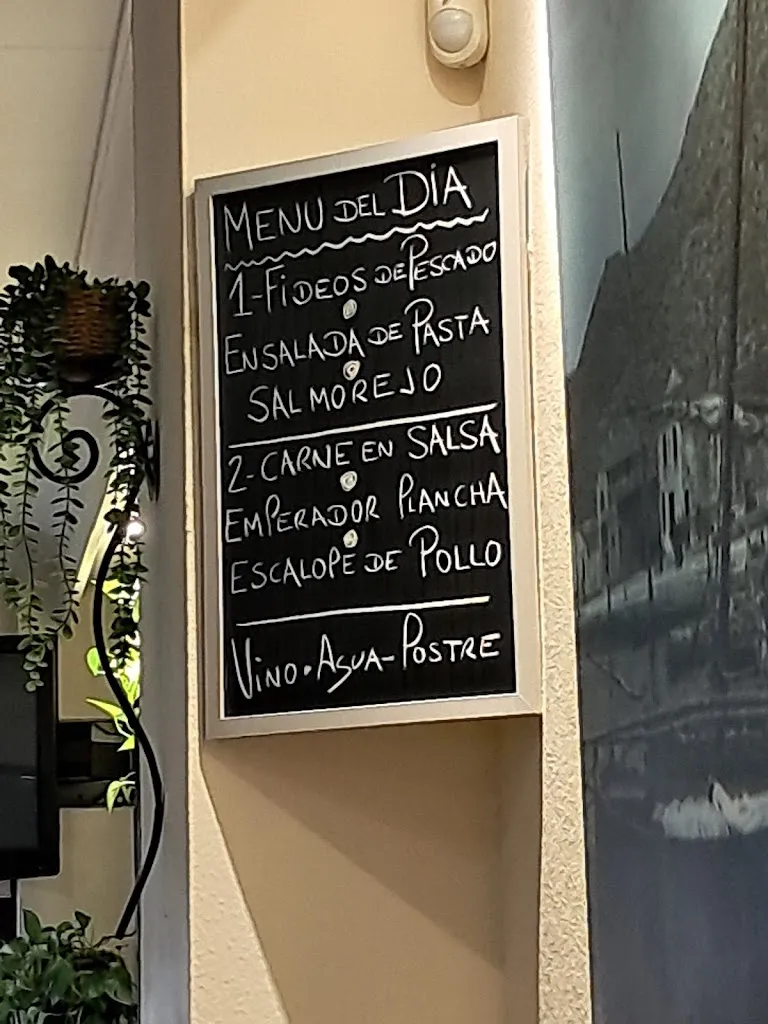 MENU DEL DÍA
1-FIDEOS DE PESCADO
ENSALADA DE PASTA
SALMOREJO
2-CARNE EN SALSA
EMPERADOR PLANCHA
ESCALOPE DE POLLO
VINO·AGUA-POSTRE